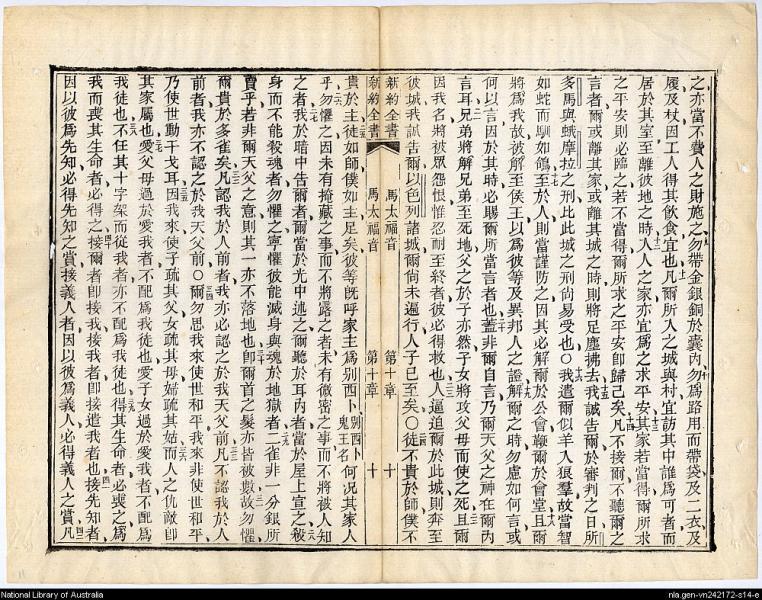 之亦當不費人之財施之勿帶金銀銅於囊內勿爲路用而帶袋及二衣及
履及杖因工人得其飲食宜也凡爾所入之城與村宜訪其中誰爲可者而
居於其室至離彼地之時入人之家亦宜爲之求平安其家若當得爾所求
之平安則必臨之若不當得爾所求之平安卽歸己矣凡不接爾不聽爾之
言者爾或離其家或離其城之時則將足塵拂去我誠告爾於審判之日所
多馬與蛾摩拉之刑比此城之刑尚易受也○我遣爾似羊入狼羣故當智
如蛇而馴如鴿至於人則當謹防之因其必解爾於公會鞭爾於會堂且爾
將爲我故彼解至侯王以爲彼等及異邦人之證解爾之時勿慮如何言或
何以言因於其時必賜爾所當言者也蓋非爾自言乃爾天父之神在爾內
言耳兄弟將解兄弟至死地父之於子亦然子女將攻父母而使之死且爾
因我名將被眾怨恨惟忍耐至終者彼必得救也人逼迫爾於此城則奔至
彼城我誠告爾以色列諸城爾尚未遍行人子已至矣○徒不貴於師僕不
新約全書 馬太福音 第十章 十
新約全書 馬太福音 第十章 十
貴於主徒如師僕如主足矣彼等旣呼家主爲別西卜別西卜鬼王名何况其家人
乎勿懼之因未有掩藏之事而不將露之者未有微密之事而不將被人知
之者我於暗中告爾者爾當於光中述之爾聽於耳內者當於屋上宣之殺
身而不能殺魂者勿懼之寧懼彼能滅身與魂於地獄者二雀非一分銀所
賣乎若非爾天父之意則其一亦不落地也卽爾首之髮亦皆被數故勿懼
爾貴於多雀矣凡認我於人前者我亦必認之於我天父前凡不認我於人
前者我亦不認之於我天父前○爾勿思我來使世和平我來非使世和平
乃使世動干戈耳因我來使子疏其父女疏其母婦疏其姑而人之仇敵卽
其家屬也愛父母過於愛我者不配爲我徒也愛子女過於愛我者不配爲
我徒也不任其十字架而從我者亦不配爲我徒也得其生命者必喪之爲
我而喪其生命者必得之接爾者卽接我接我者卽接遣我者也接先知者
因以彼爲先知必得先知之賞接義人者因以彼爲義人必得義人之賞凡
National Library of Australia
nla.gen-vn242172-s14-e